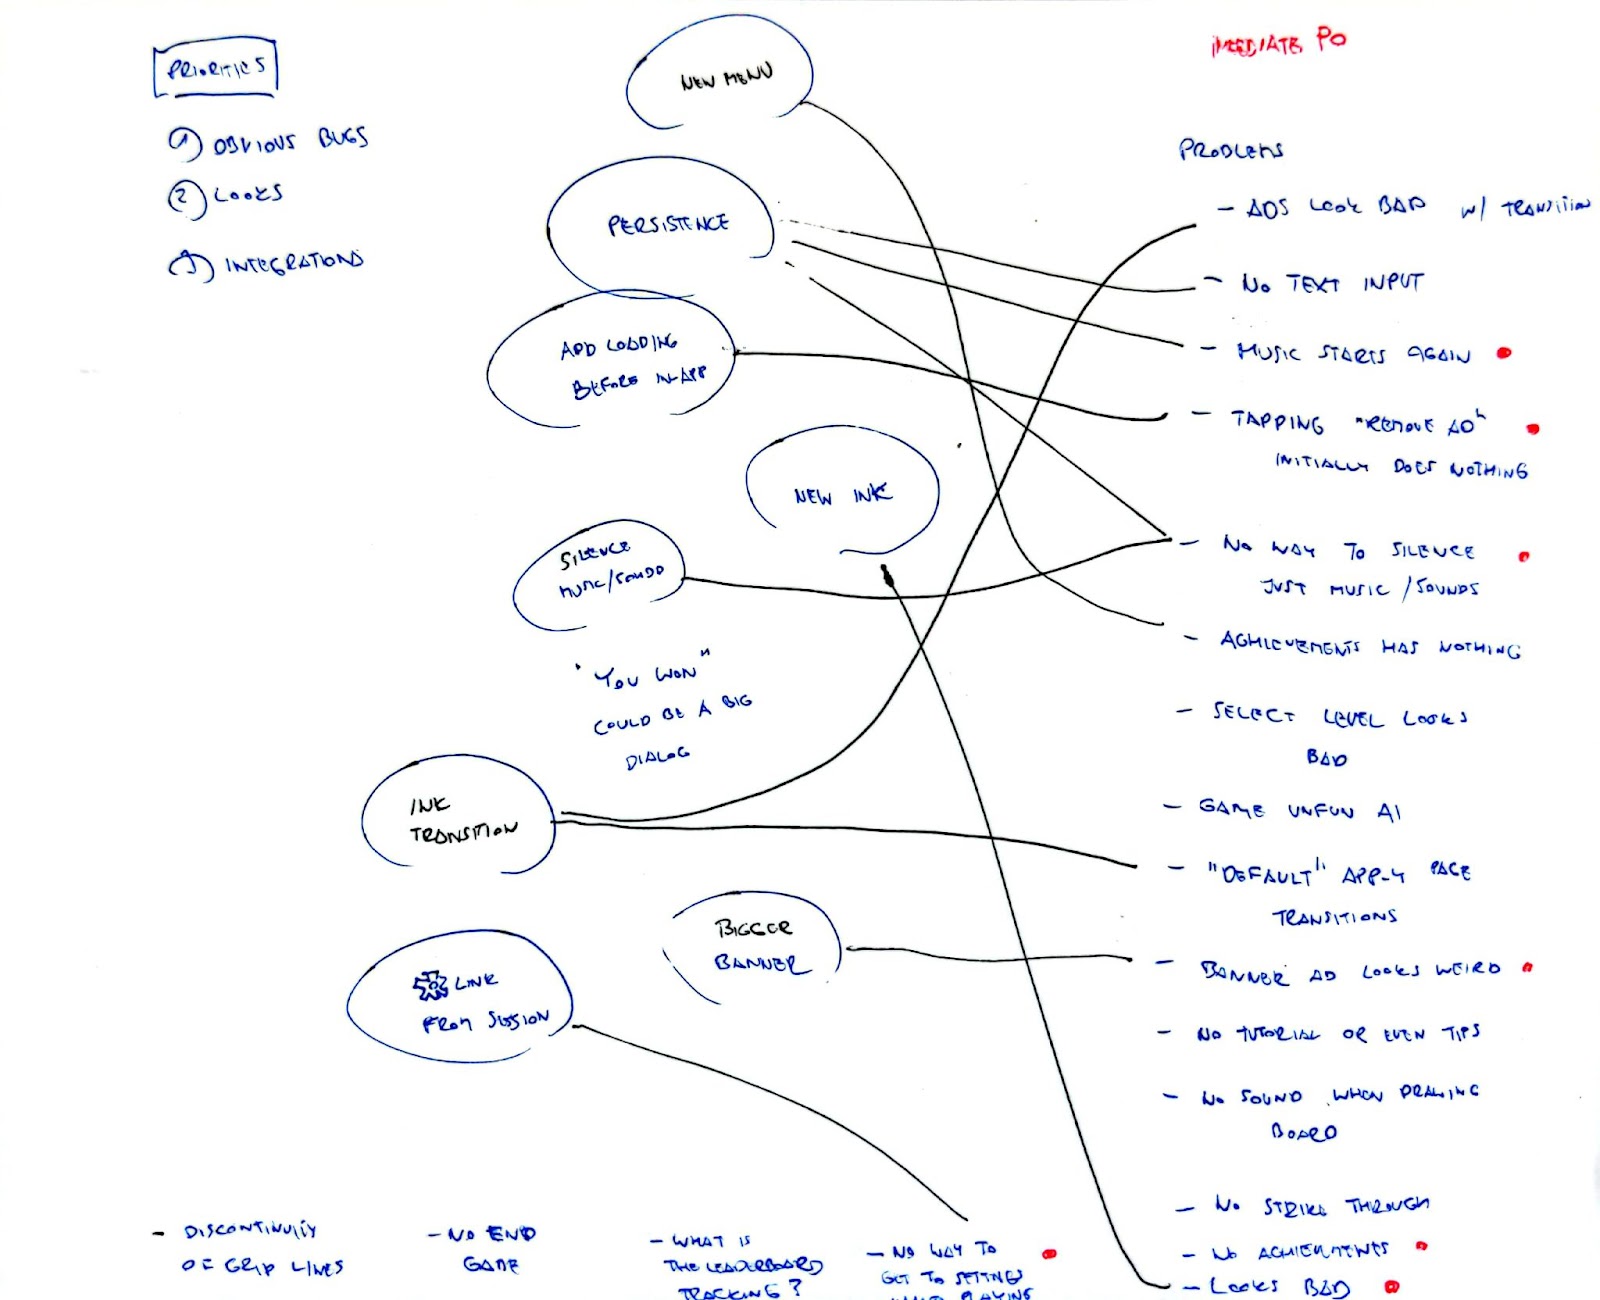 PRIORITIES
1 OBVIOUS BUGS
2 LOOKS
INTEGRATIONS
NEW MENU
PERSISTENCE
ADD LOADING
BEFORE IN-APP
NEW INK
SILENCE
MUSIC/SOUND
"YOU WON"
COULD BE A BIG
DIALOG
INK
TRANSITION
BIGGER
BANNER
LINK
FROM SESSION
IMEDIATE PO
PROBLEMS
- ADS LOOK BAD W/ TRANSITION
- NO TEXT INPUT
- MUSIC STARTS AGAIN
- TAPPING "REMOVE AD"
INITIALLY DOES NOTHING
- NO WAY TO SILENCE
JUST MUSIC/SOUNDS
- ACHIEVEMENTS HAS NOTHING
- SELECT LEVEL LOOKS
BAD
- GAME UNFUN AI
- "DEFAULT" APP-Y PAGE
TRANSITIONS
- BANNER AD LOOKS WEIRD
- NO TUTORIAL OR EVEN TIPS
- NO SOUND WHEN DRAWING
BOARD
- NO STRIKE THROUGH
- NO ACHIEVMENTS
- LOOKS BAD
- DISCONTINUITY
OF GRID LINES
- NO END
GAME
- WHAT IS
THE LEADERBOARD
TRACKING?
- NO WAY TO
GET TO SETTINGS
WHILE PLAYING